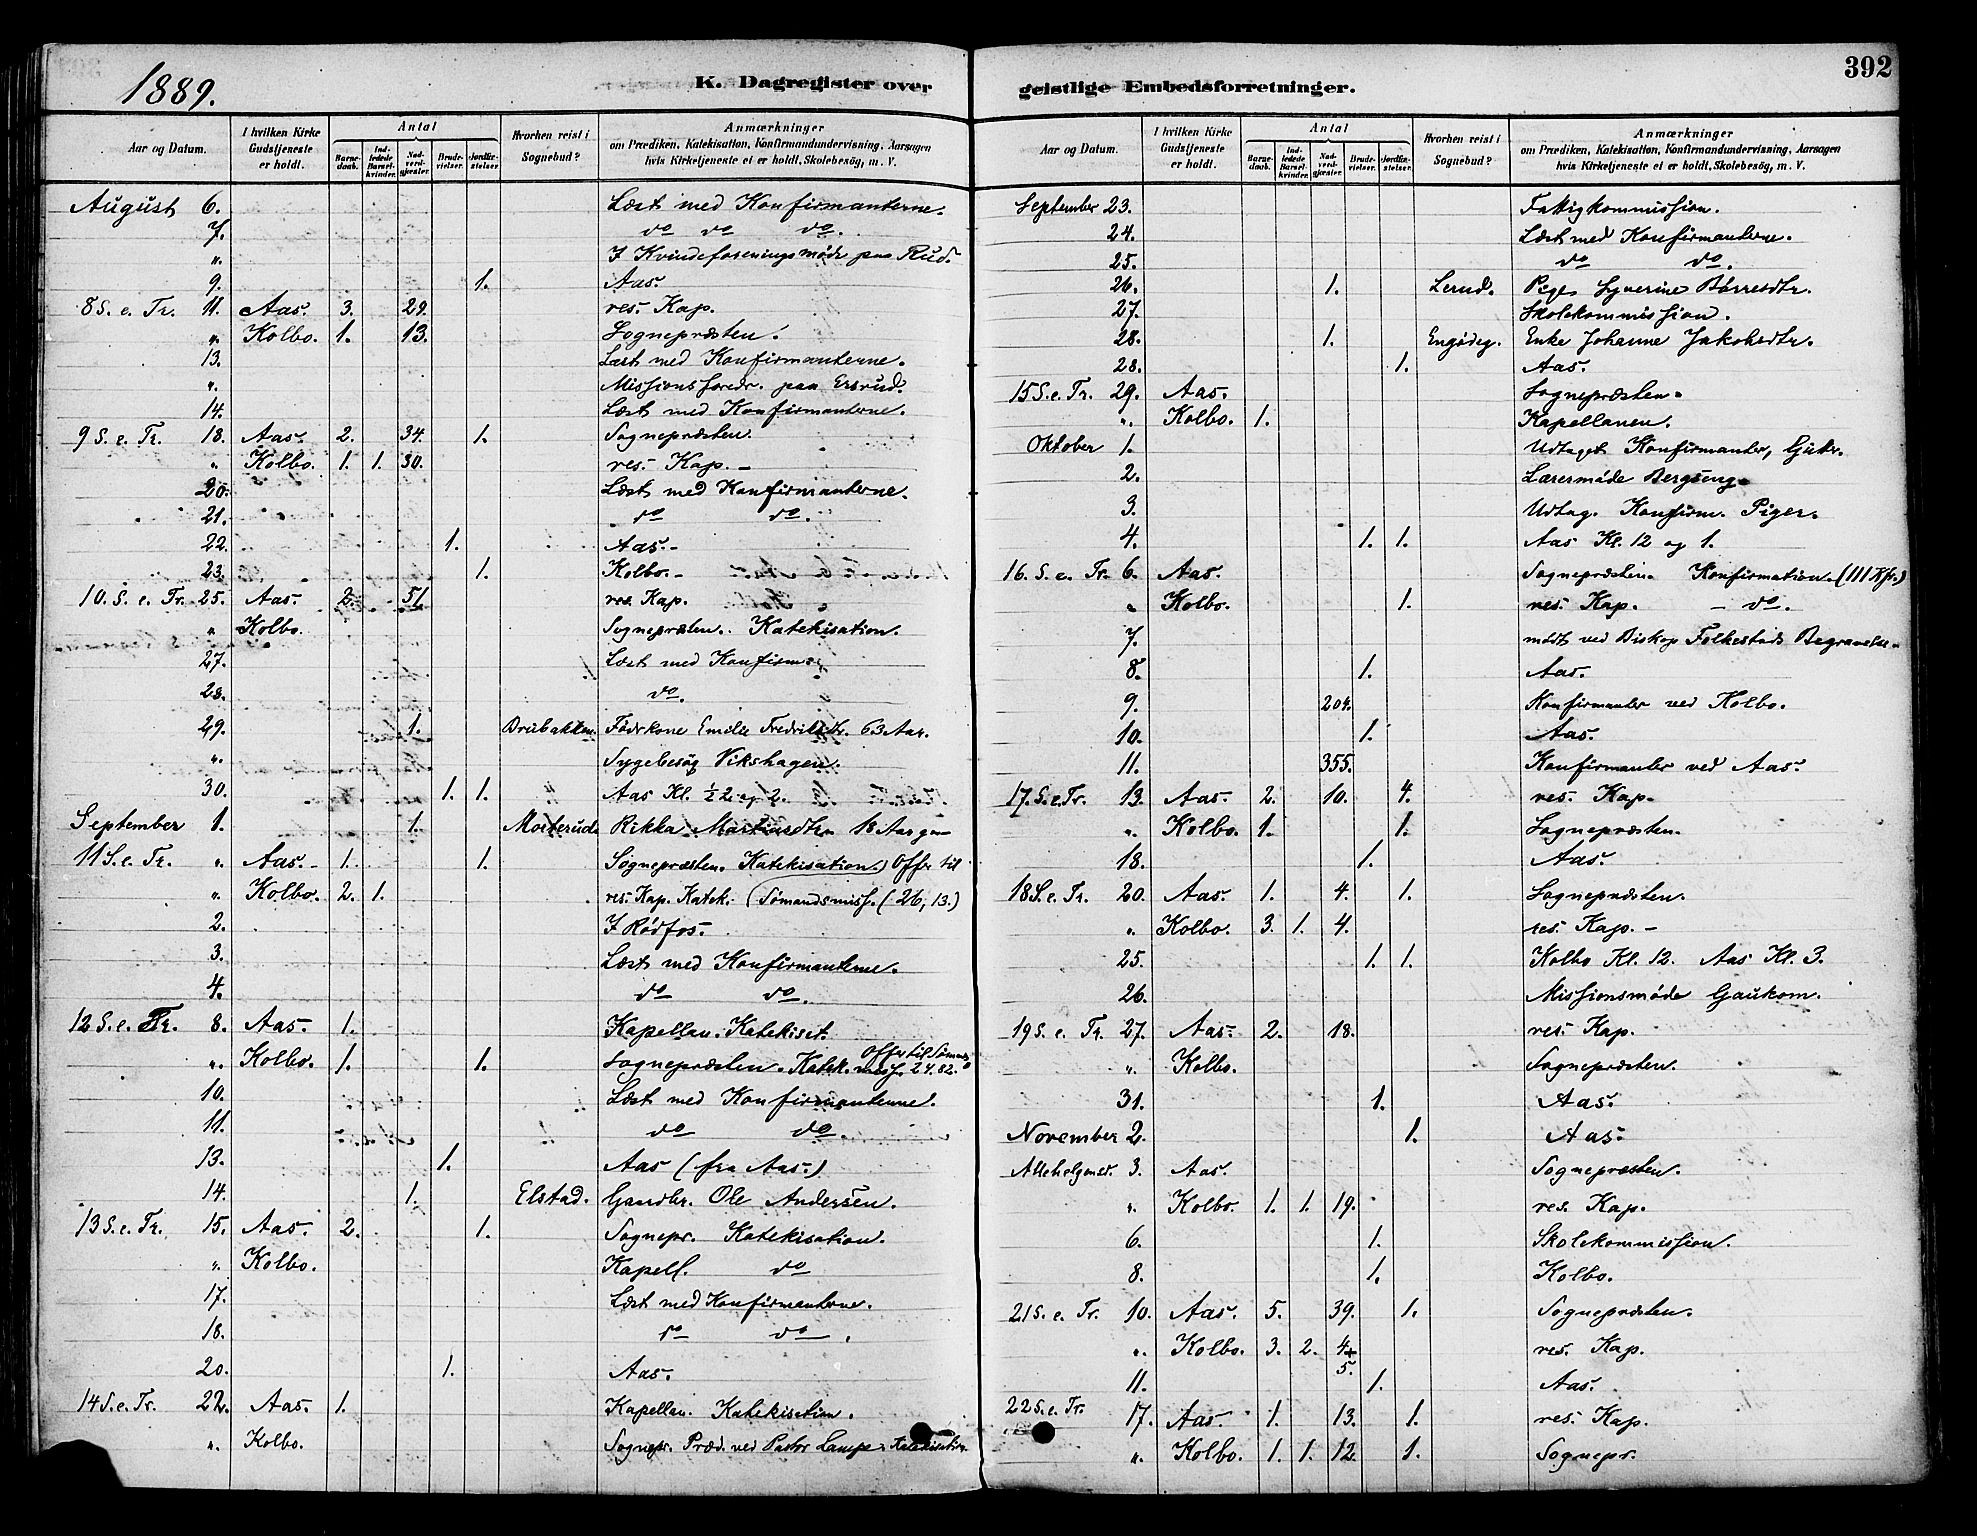 1889.
K. Dagregister over
Aar og Datum. I hvilken Kirke Gudstjeneste er holdt. Antal Barnedaab. Indledede Barselkvinder. Nadverdgjæster. Brudevielser. Jordfæstelser. Hvorhen reist i Sognebud? Anmærkninger om Prædiken, Katekisation, Konfirmandundervisning, Aarsagen hvis Kirketjeneste ei er holdt, Skolebesög, m. V.
August 6. Læst med Konfirmanterne.
7. do do do.
". I Kvindeforeningsmøde paa Rud.
9. 1. Aas.
8 S. e. Tr. 11. Aas. 3. 29. res. Kap.
". Kolbo. 1. 13. Sognepræsten.
13. Læst med Konfirmanterne.
". Missionsforedr. paa Ersrud.
14. Læst med Konfirmanterne.
9 S. e. Tr. 18. Aas. 2. 34. 1. Sognepræsten.
" Kolbo. 1. 1. 30. res. Kap.
20. Læst med Konfirmanterne.
21. do do.
22. 1. Aas.
23. 1. Kolbo.
10. S. e. Tr. 25. Aas. 2. 51 res. Kap.
" Kolbo. Sognepræsten. Katekisation.
27. Læst med Konfirm.
28. do.
29. 1. Födrkone Emilie Fredriksdtr. 63 Aar.
". Sygebesög Vikshagen.
30. 1. 1. Aas Kl. ½2 og 2.
September 1. 1. Rikka 18 Aar gm
11 S. e. Tr. " Aas. 1. 1. Sognepræsten. Katekisation Offer til
". Kolbo. 2. 1. res. Kap. Katek. Sømandsmiss. (26,13.)
2. I Rødfos.
3. Læst med Konfirmanterne.
4. do do.
12 S. e. Tr. 8. Aas. 1. Kapellan. Katekiset.
". Kolbo. 1. 1. Sognepræsten. Katek. Offer til Sømands miss. 24.82.
10. Læst med Konfirmanterne.
11. do do.
13. 1. Aas (fra Aas.)
14. 1. Elstad. Gaardbr. Ole Andersen.
13 S. e. Tr. 15. Aas. 2. 1. Sognepr. Katekisation.
". Kolbo. Kapell. do
17. Læst med Konfirmanterne.
18. do do.
20. 1. Aas.
14 S. e. Tr. 22. Aas. 1. Kapellan. Katekisation.
". Kolbo. Sognepr. Præd. ved Pastor Lampe. Katekisation
geistlige Embedsforretninger. 392
Aar og Datum. I hvilken Kirke Gudstjeneste er holdt. Antal Barnedaab. Indledede Barselkvinder. Nadverdgjæster. Brudevielser. Jordfæstelser. Hvorhen reist i Sognebud? Anmærkninger om Prædiken, Katekisation, Konfirmandundervisning, Aarsagen hvis Kirketjeneste ei er holdt, Skolebesög, m. V.
September 23. Fattigkommission.
24. Læst med Konfirmanterne.
25. do do.
26. 1. Lerud. Pige Syverine Børresdtr.
27. Skolekommission.
28. 1. Engödeg. Enke Johanne Jakobsdtr.
28. 1. Aas.
15 S. e. Tr. 29. Aas. Sognepræsten.
". Kolbo. 1. Kapellanen.
Oktober 1. Udtaget Konfirmanter, Gutr.
2. Lærermøde Bergseng.
3. Udtag. Konfirm. Piger.
4. 1. 1. Aas Kl. 12 og 1.
16. S. e. Tr. 6. Aas. Sognepræsten. Konfirmation. (111 Kfr.)
" Kolbo. 1. res. Kap. – do.
7. mødt ved Biskop Folkestads Begravelse.
8. 1. Aas.
9. 204. Konfirmanter ved Kolbo.
10. 1. Aas.
11. 355. Konfirmanter ved Aas.
17. S. e. Tr. 13. Aas. 2. 10. 4. res. Kap.
". Kolbo. 1. 1. Sognepræsten.
18. 1. Aas.
18 S. e. Tr. 20. Aas. 1. 4. 1. Sognepræsten.
". Kolbo. 3. 1. 4. res. Kap.
25. 1. 1. Kolbo Kl. 12. Aas Kl. 3.
26. Missionsmøde Gaukom.
19 S. e. Tr. 27. Aas. 2. 18. res. Kap.
". Kolbo. Sognepræsten.
31. 1. Aas.
November 2. 1. Aas.
Allehelgensd. 3. Aas. Sognepræsten.
". Kolbo. 1. 1. 19. res. Kap.
6. 1. Skolekommission.
8. 1. Kolbo.
21 S. e. Tr. 10. Aas. 5. 39. 1. Sognepræsten.
". Kolbo. 3. 2. 4+5. res. Kap.
11. 1. Aas.
22 S. e. Tr. 17. Aas. 1. 13. 1. res. Kap.
". Kolbo. 1. 1. 12. 1. Sognepr.